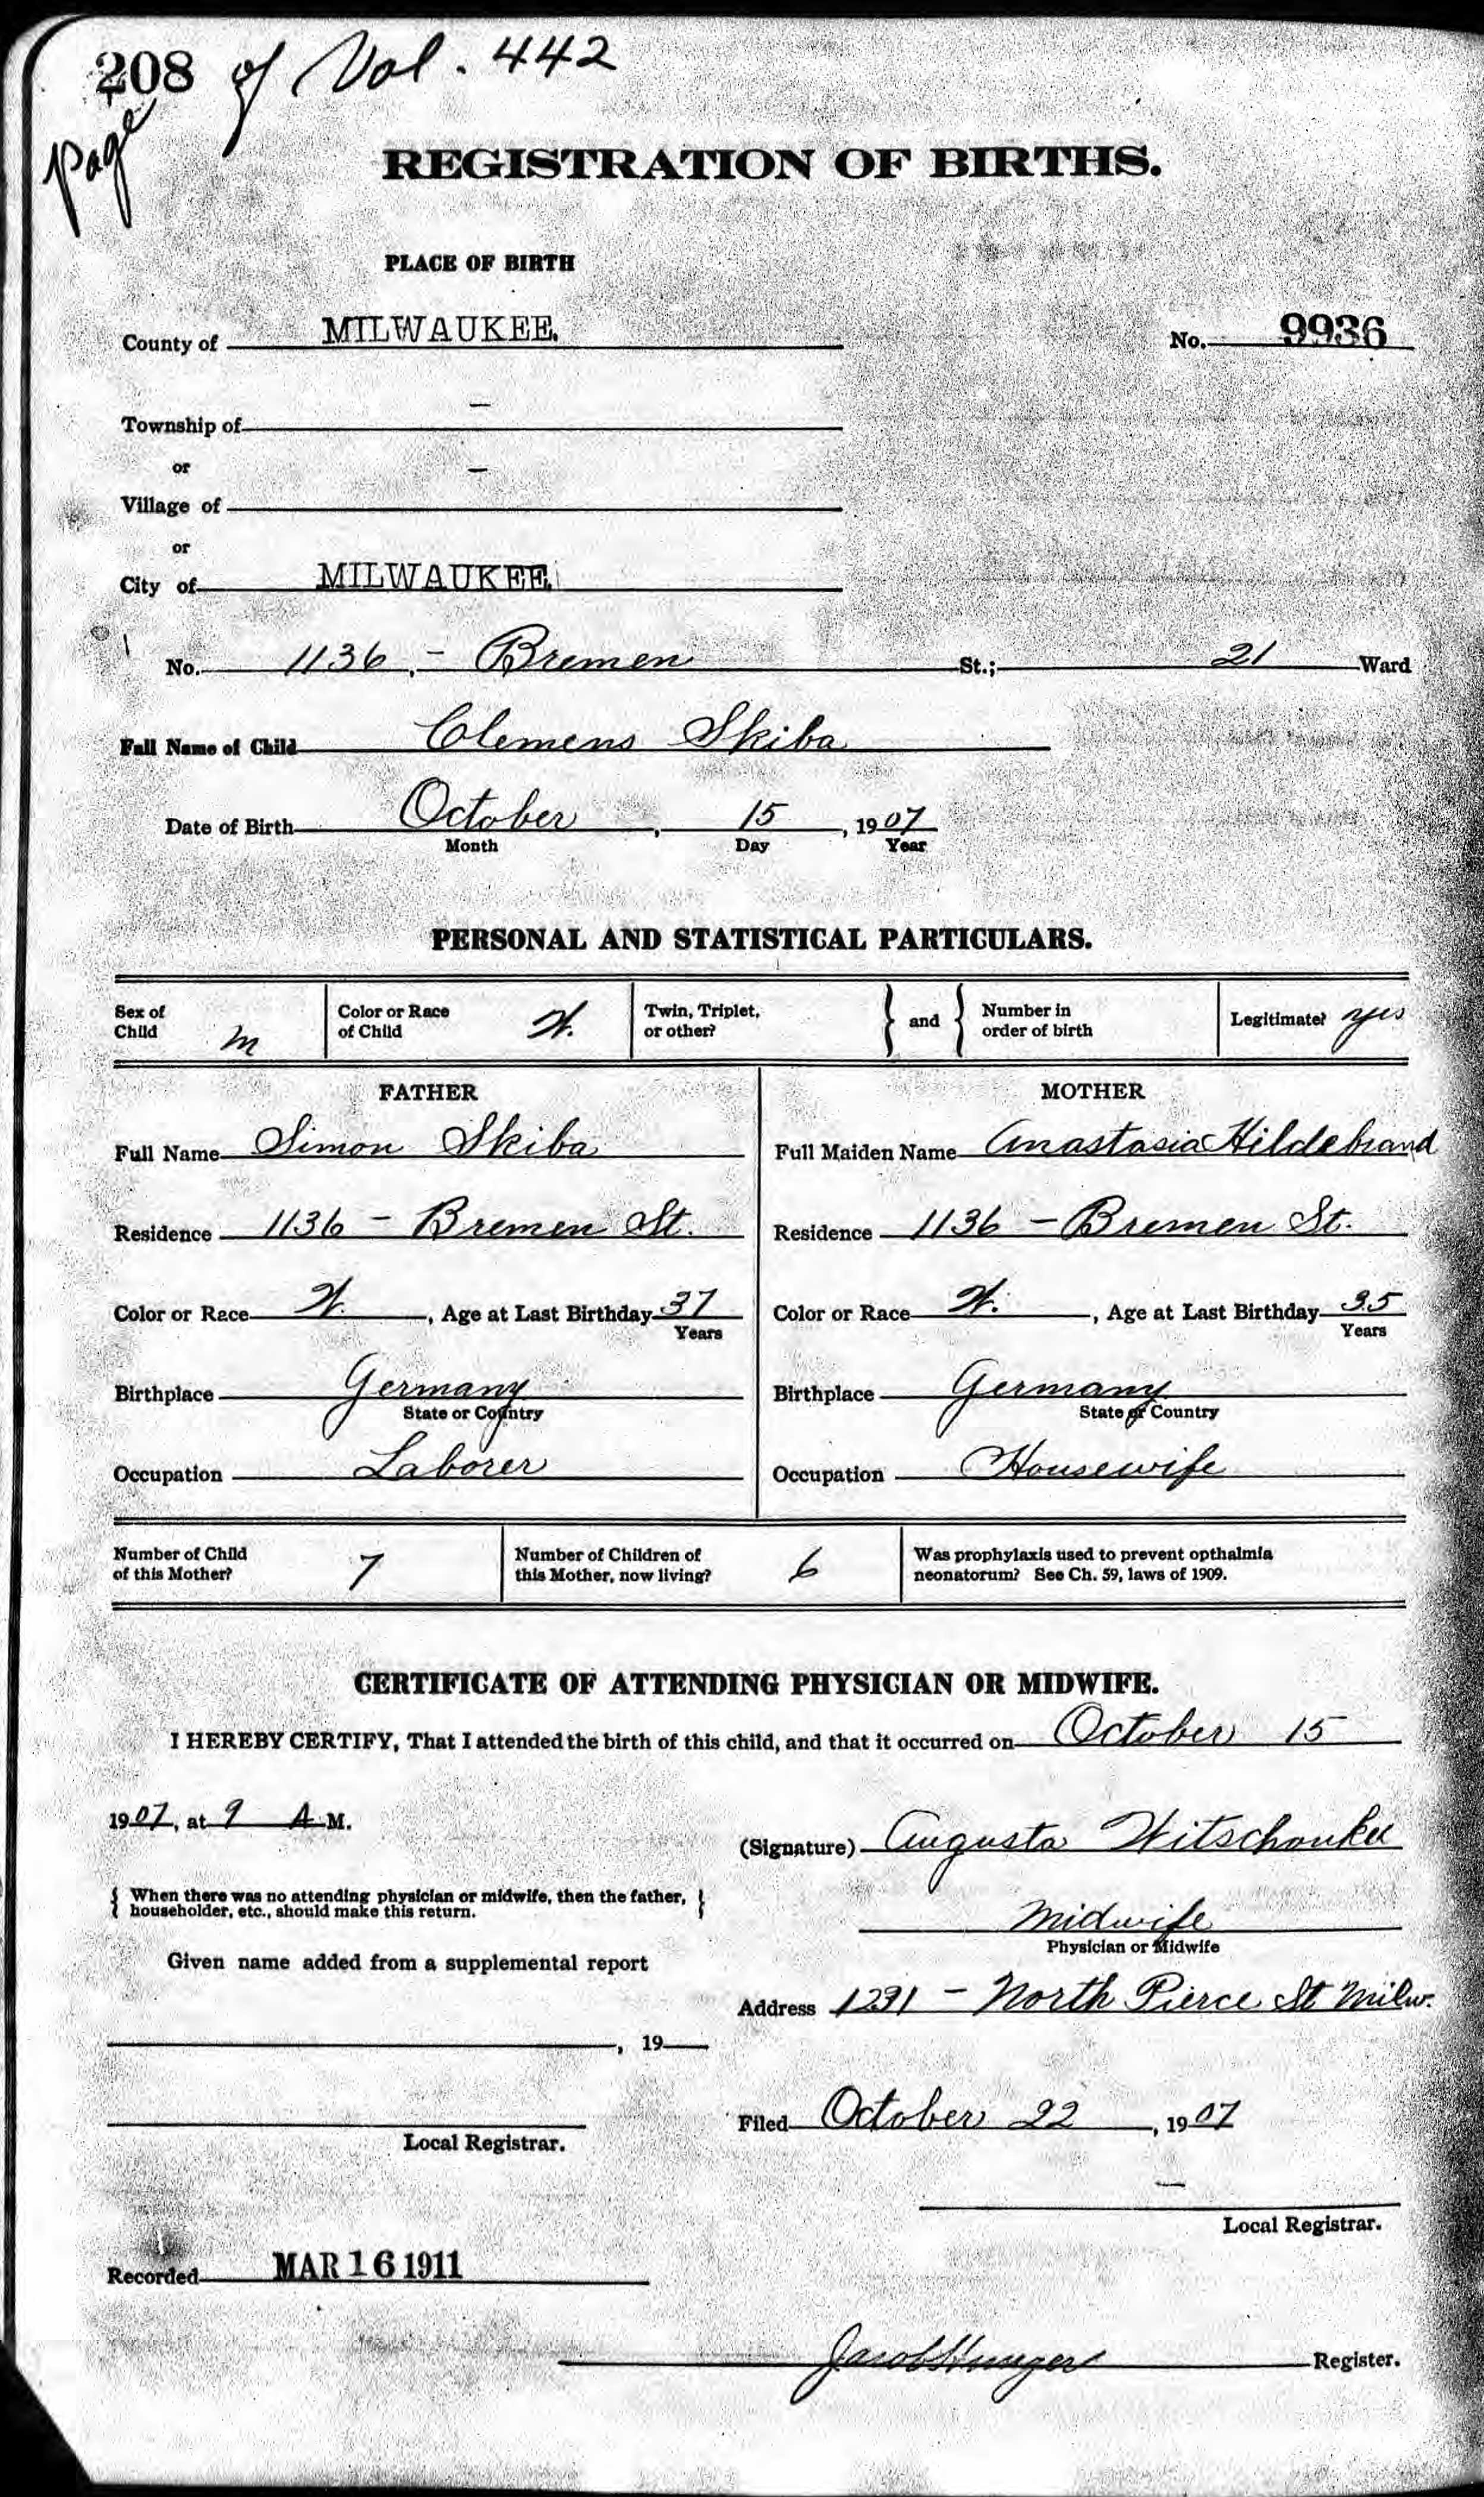 208 of Vol. 442
page
REGISTRATION OF BIRTHS.
PLACE OF BIRTH
County of MILWAUKEE. No. 9936
Township of —
or
Village of —
or
City of MILWAUKEE.
No. 1136 - Bremen St.; 21 Ward
Full Name of Child Clemens Skiba
Date of Birth October, 15, 1907
Month Day Year
PERSONAL AND STATISTICAL PARTICULARS.
Sex of Child m Color or Race of Child W. Twin, Triplet, or other? } and { Number in order of birth Legitimate? yes
FATHER MOTHER
Full Name Simon Skiba Full Maiden Name Anastasia Hildebrand
Residence 1136 - Bremen St. Residence 1136 - Bremen St.
Color or Race W., Age at Last Birthday 37 Color or Race W., Age at Last Birthday 35
Years Years
Birthplace Germany Birthplace Germany
State or Country State or Country
Occupation Laborer Occupation Housewife
Number of Child of this Mother? 7 Number of Children of this Mother, now living? 6 Was prophylaxis used to prevent opthalmia neonatorum? See Ch. 59, laws of 1909.
CERTIFICATE OF ATTENDING PHYSICIAN OR MIDWIFE.
I HEREBY CERTIFY, That I attended the birth of this child, and that it occurred on October 15
1907, at 9 A.M.
(Signature) Augusta
{ When there was no attending physician or midwife, then the father, householder, etc., should make this return. }
Midwife
Physician or Midwife
Given name added from a supplemental report
Address 1291 - North Pierce St Milw.
, 19
Filed October 22, 1907
Local Registrar.
—
Local Registrar.
Recorded MAR 16 1911
Jacob Hunger Register.